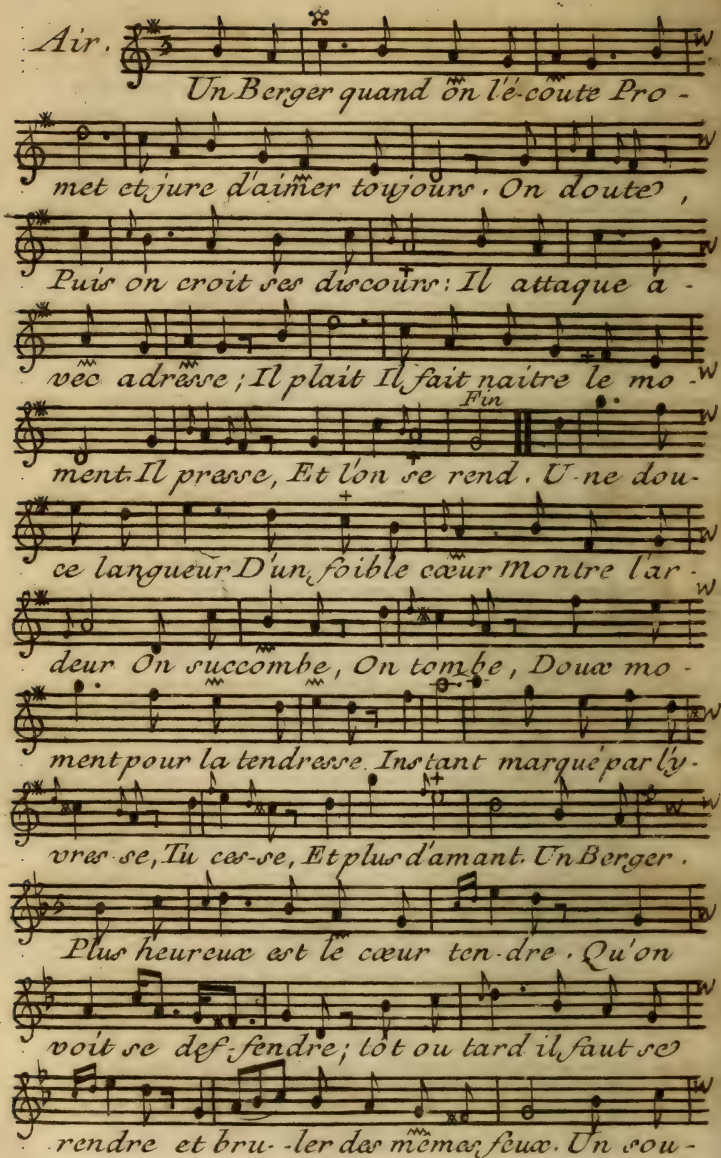 Air.
Un Berger quand on l'é-coute Pro-
met et jure d'aimer toujours. On doute,
Puis on croit ses discours: Il attaque a-
vec adresse; Il plait Il fait naitre le mo-
Fin
ment. Il presse, Et l'on se rend. U-ne dou-
ce langueur D'un foible cœur Montre l'ar-
deur On succombe, On tombe, Doux mo-
ment pour la tendresse. Instant marqué par l'y-
vres-se, Tu ces-se, Et plus d'amant. Un Berger.
Plus heureux est le cœur ten-dre. Qu'on
voit se def-fendre; tôt ou tard il faut se
rendre et bru--ler des mêmes feux. Un sou-